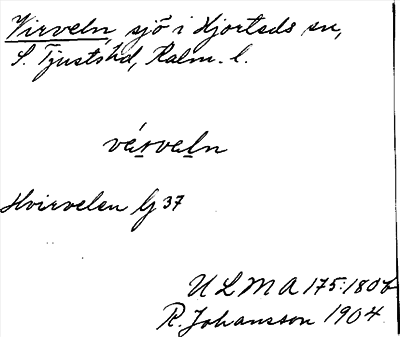 Virveln, sjö i Hjorteds sn,
S. Tjusts hd, Kalm. l.
vérveln
Hvirvelen Gj 37
ULMA 175:180b
R. Johansson 1904